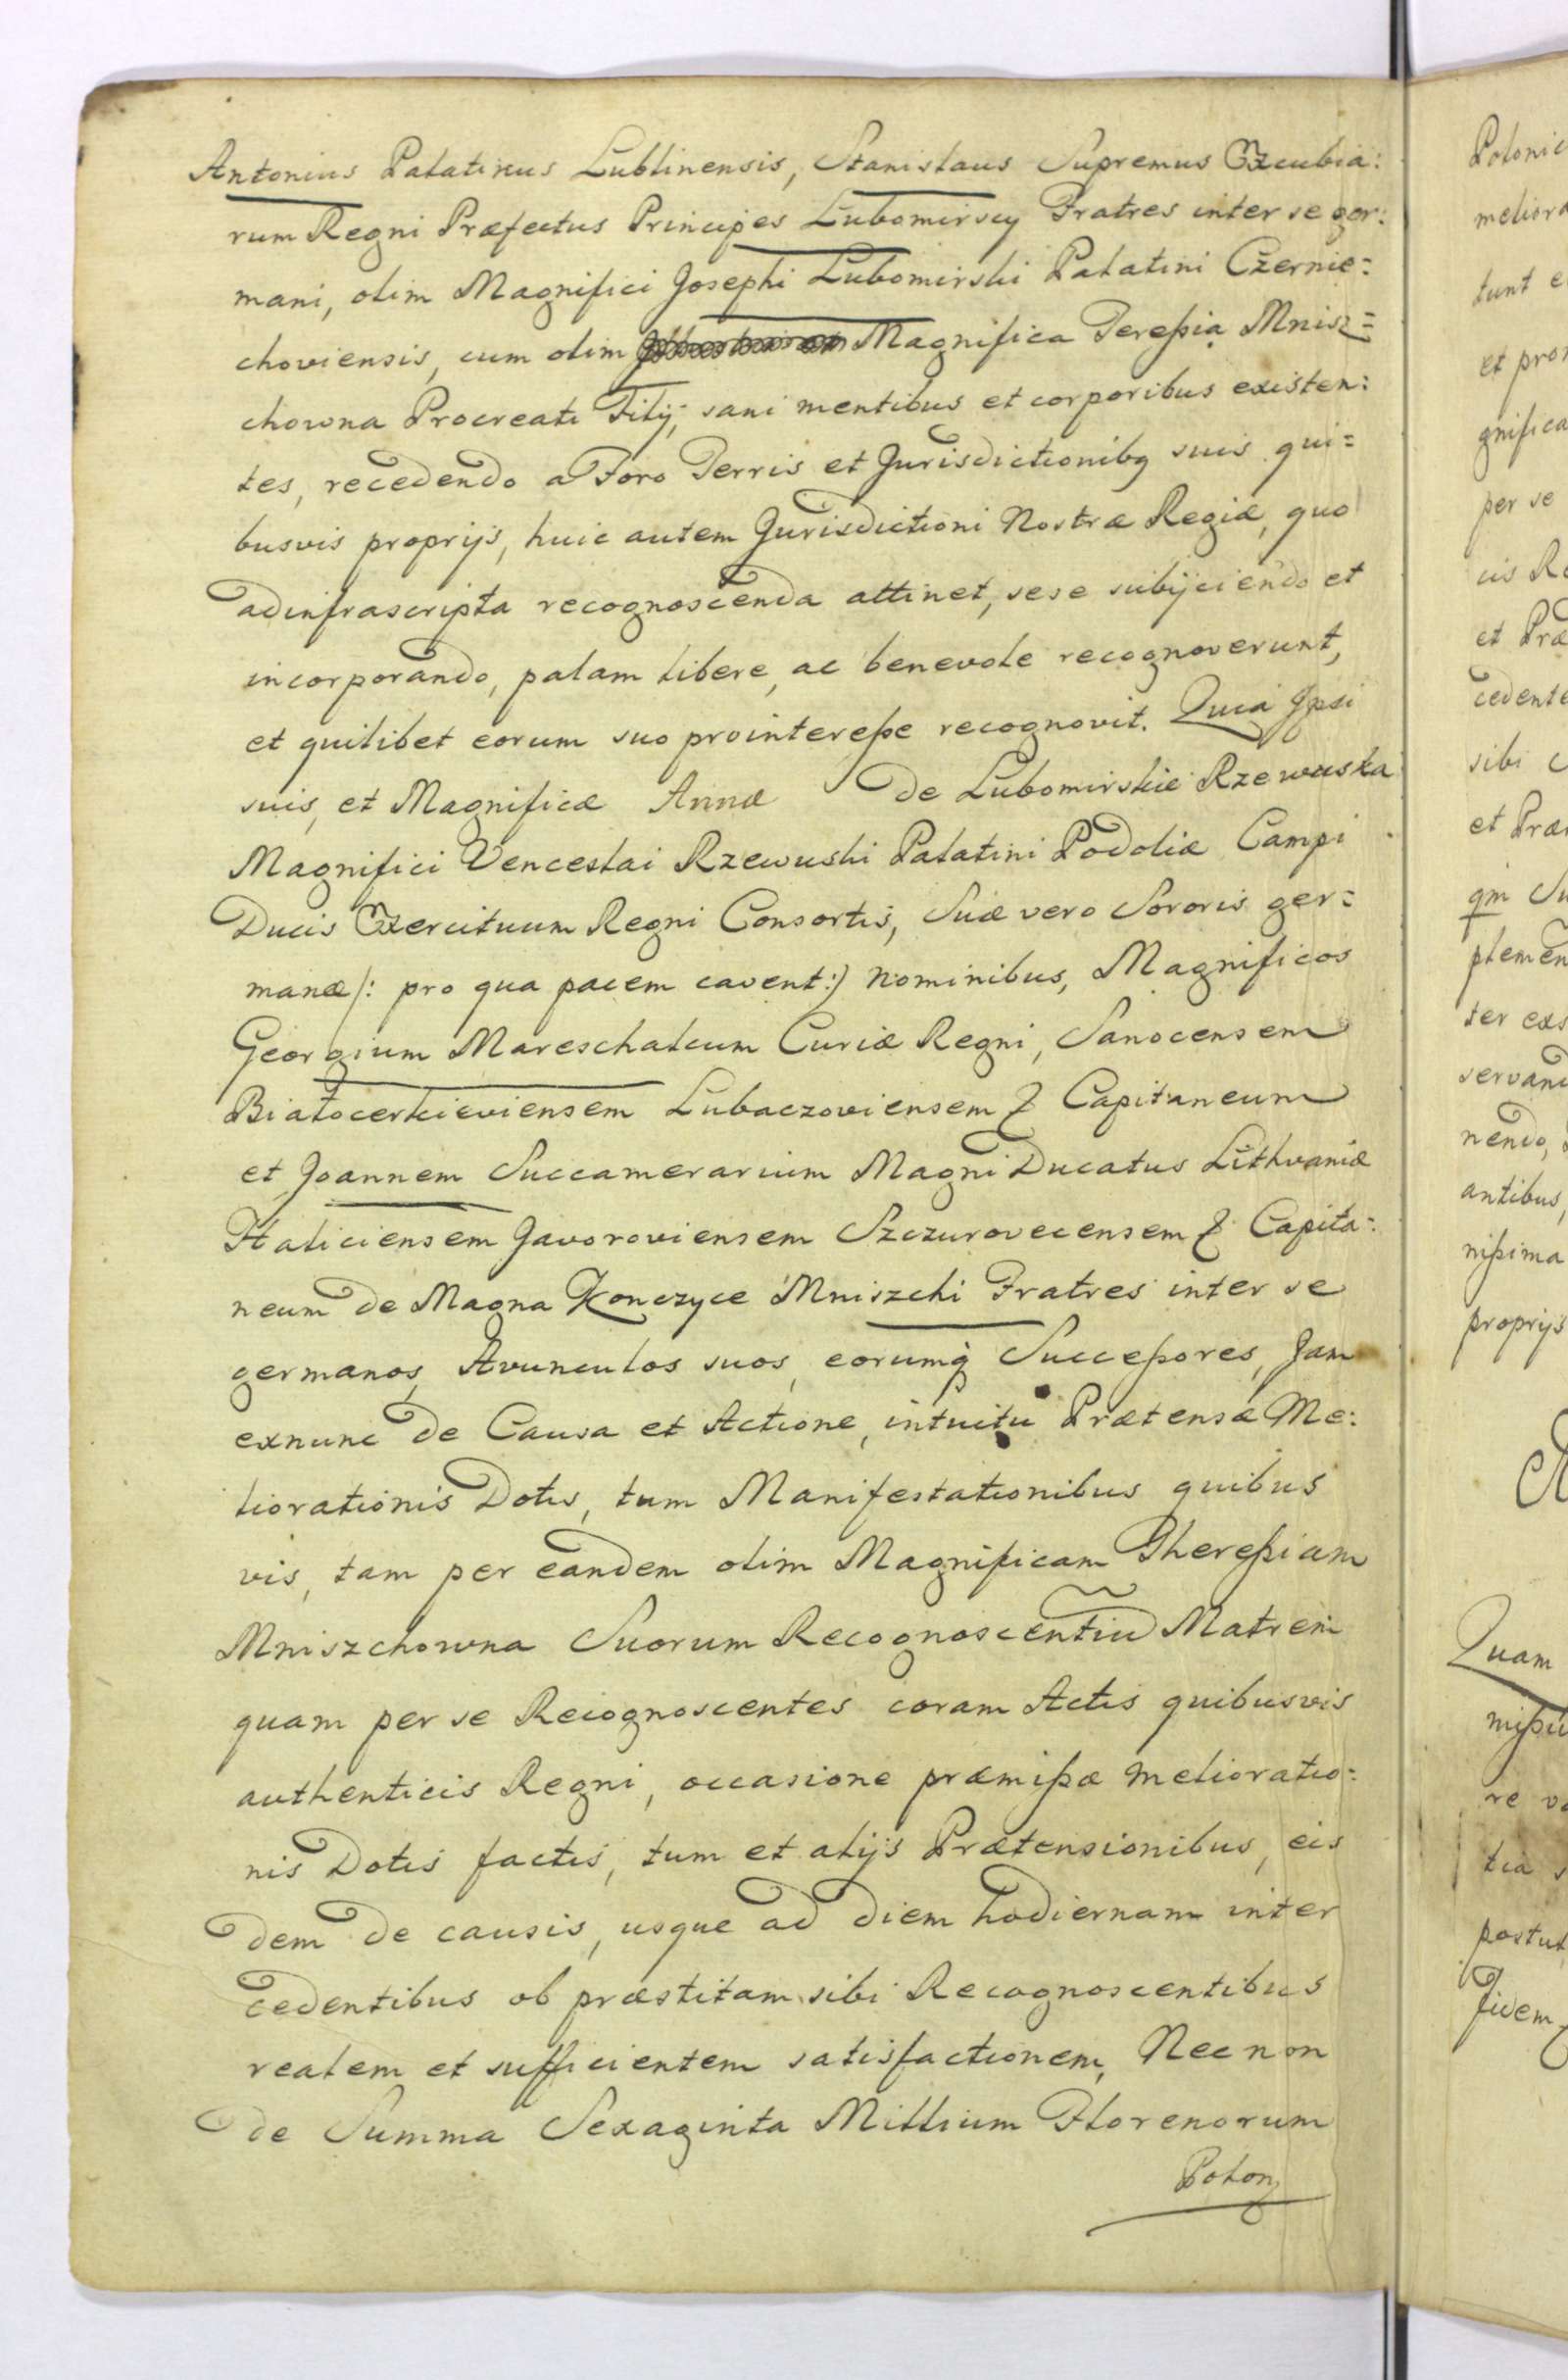 Antonius Palatinus Lublinensis, Stanislaus Supremus Excubia:
rum Regni Præfectus Principes Lubomirscy Fratres inter se ger:
mani, olim Magnifici Josephi Lubomirski Palatini Czernie=
choviensis, cum olim Magnifica Tereßia Mnisz=
chowna Procreati Filij, sani mentibus et corporibus existen:
tes, recedendo a Foro Terris et Jurisdictionibq suis qui=
busvis proprijs, huic autem Jurisdictioni Nostræ Regiæ, quo
adinfrascripta recognoscenda attinet, sese subijciendo et
incorporando, palam libere, ac benevole recognoverunt,
et quilibet eorum suo prointereße recognovit. Quia Ipsi
suis, et Magnificæ Annæ de Lubomirskie Rzewuska
Magnifici Venceslai Rzewuski Palatini Podoliæ Campi
Ducis Exercituum Regni Consortis, Suæ vero Sororis ger=
manæ /: pro qua pacem cavent :/ Nominibus, Magnificos
Georgium Mareschalcum Curiæ Regni, Sanocensem
Białocerkieviensem Lubaczoviensem & Capitaneum
et Joannem Succamerarium Magni Ducatus Lithvaniæ
Haliciensem Javoroviensem Szczurovecensem & Capita:
neum de Magna Konczyce Mniszchi Fratres inter se
germanos, Avunculos suos, eorumq Succeßores, Jam
exnunc de Causa et Actione, intuitu Prætensæ Me:
liorationis Dotis, tum Manifestationibus quibus
vis, tam per eandem olim Magnificam Thereßiam
Mniszchowna Suorum Recognoscentiũ Matrem
quam per se Recognoscentes coram Actis quibusvis
authenticis Regni, occasione præmißæ melioratio:
nis Dotis factis, tum et alijs Prætensionibus, eis
dem de causis, usque ad diem hodiernam inter
cedentibus ob præstitam sibi Recognoscentibus
realem et sufficientem satisfactionem, Nec non
de Summa Sexaginta Millium Florenorum
Polon
Polonic
meliora
tunt e
et pro
gnifica
per se
cis Re
et Præ
cedente
sibi
et Præ
qm Su
plemen
ter exs
servand
nendo,
antibus,
nißima
proprijs
Quam
mißu
re
tia
postul
fidem